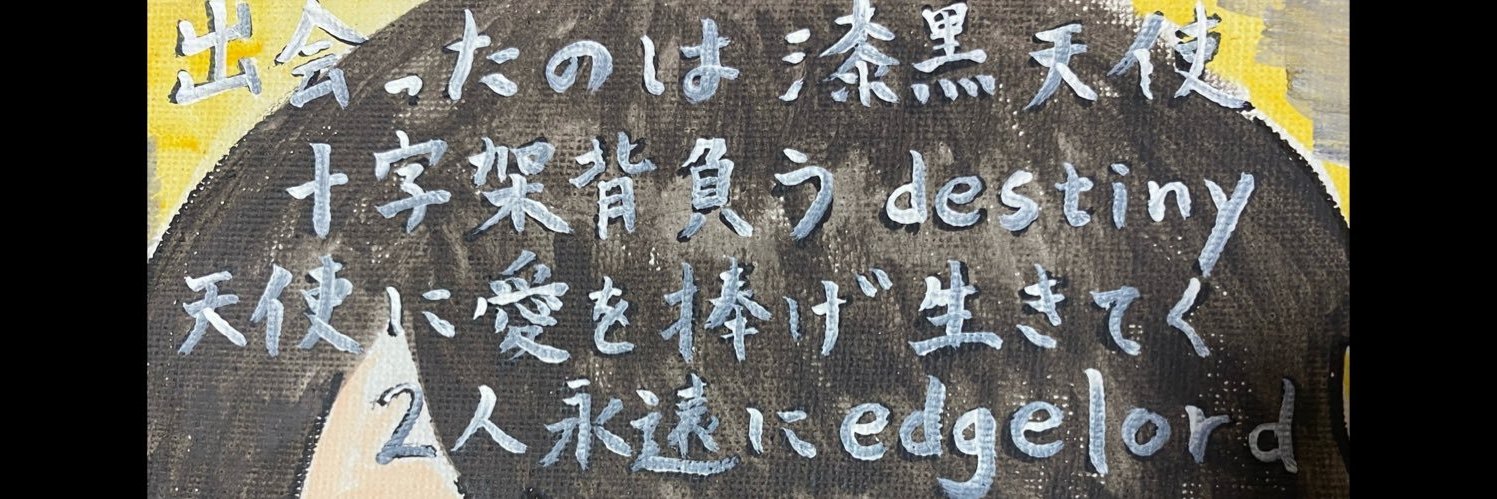 出会ったのは漆黒天使
十字架背負うdestiny
天使に愛を捧げ生きてく
2人永遠にedgelord